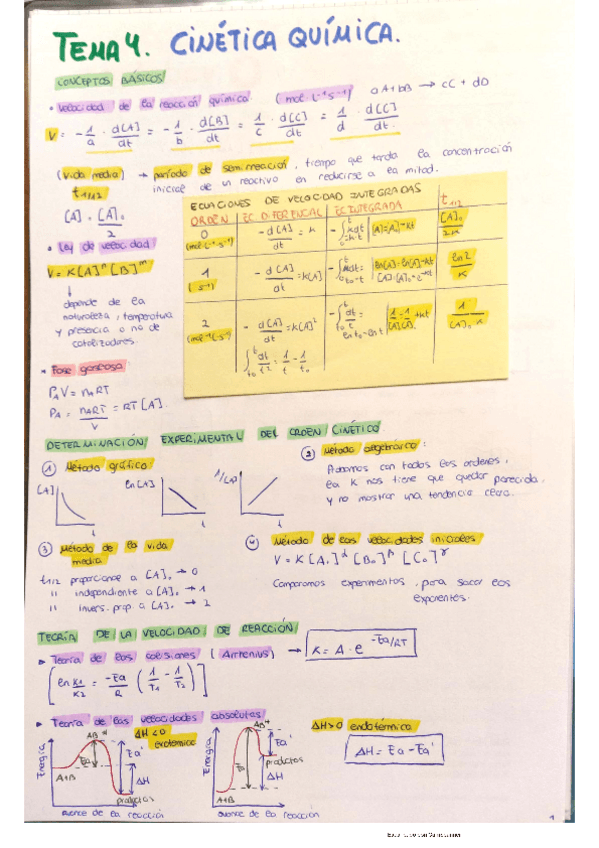 TEMA 4. CINÉTICA QUÍMICA.
CONCEPTOS BÁSICOS
• Velocidad de la reacción química (mol L⁻¹ s⁻¹) aA + bB → cC + dD
V = -1/a · d[A]/dt = -1/b · d[B]/dt = 1/c · d[C]/dt = 1/d · d[C]/dt.
(vida media) → período de semirreacción, tiempo que tarda la concentración
t1/2 inicial de un reactivo en reducirse a la mitad.
[A] = [A]₀/2
• Ley de velocidad
V = K[A]ⁿ[B]ᵐ
↓
depende de la
naturaleza, temperatura
y presencia o no de
catalizadores.
• Fase gaseosa
PₐV = nₐRT
Pₐ = nₐRT/V = RT[A].
ECUACIONES DE VELOCIDAD INTEGRADAS
ORDEN EC DIFERENCIAL EC INTEGRADA t1/2
0 (mol·L⁻¹·s⁻¹) -d[A]/dt = K [A]=[A]₀-Kt [A]₀/2K
1 (s⁻¹) -d[A]/dt = K[A] ln[A]=ln[A]₀-Kt [A]=[A]₀·e⁻ᴷᵗ ln2/K
2 -d[A]/dt = K[A]² 1/[A]₀·K
DETERMINACIÓN EXPERIMENTAL DEL ORDEN CINÉTICO
① Método gráfico
[A] t ln[A] t t
② Método algebraico:
Probamos con todos los ordenes,
la K nos tiene que quedar parecida
y no mostrar una tendencia clara.
③ Método de la vida
media
t1/2 proporcional a [A]₀ → 0
" independiente a [A]₀ → 1
" invers. prop. a [A]₀ → 2
④ Método de las velocidades iniciales
V = K [A₀]^α [B₀]^β [C₀]^γ
Comparamos experimentos, para sacar los
exponentes.
TEORÍA DE LA VELOCIDAD DE REACCIÓN
Teoría de las colisiones (Arrhenius) → K = A · e^(-Ea/RT)
[ln K1/K2 = -Ea/R (1/T1 - 1/T2)]
Teoría de las velocidades absolutas
Energía AB* ΔH<0 exotérmica Ea Ea' ΔH A+B productos
avance de la reacción
Energía AB* Ea' productos ΔH A+B
avance de la reacción
ΔH>0 endotérmica
ΔH = Ea - Ea'
1